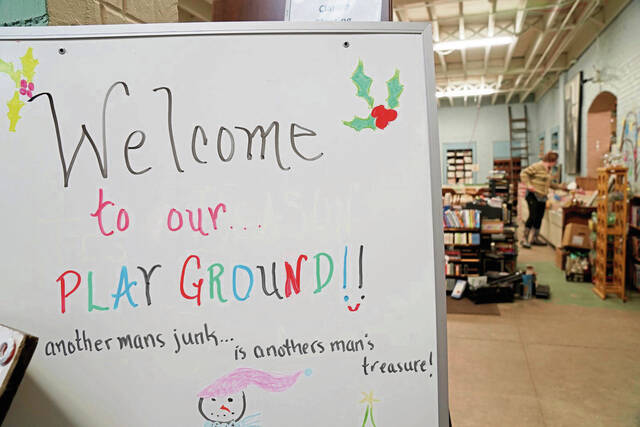 Welcome
to our...
PLAY GROUND!!
another mans junk...
is anothers man's
treasure!